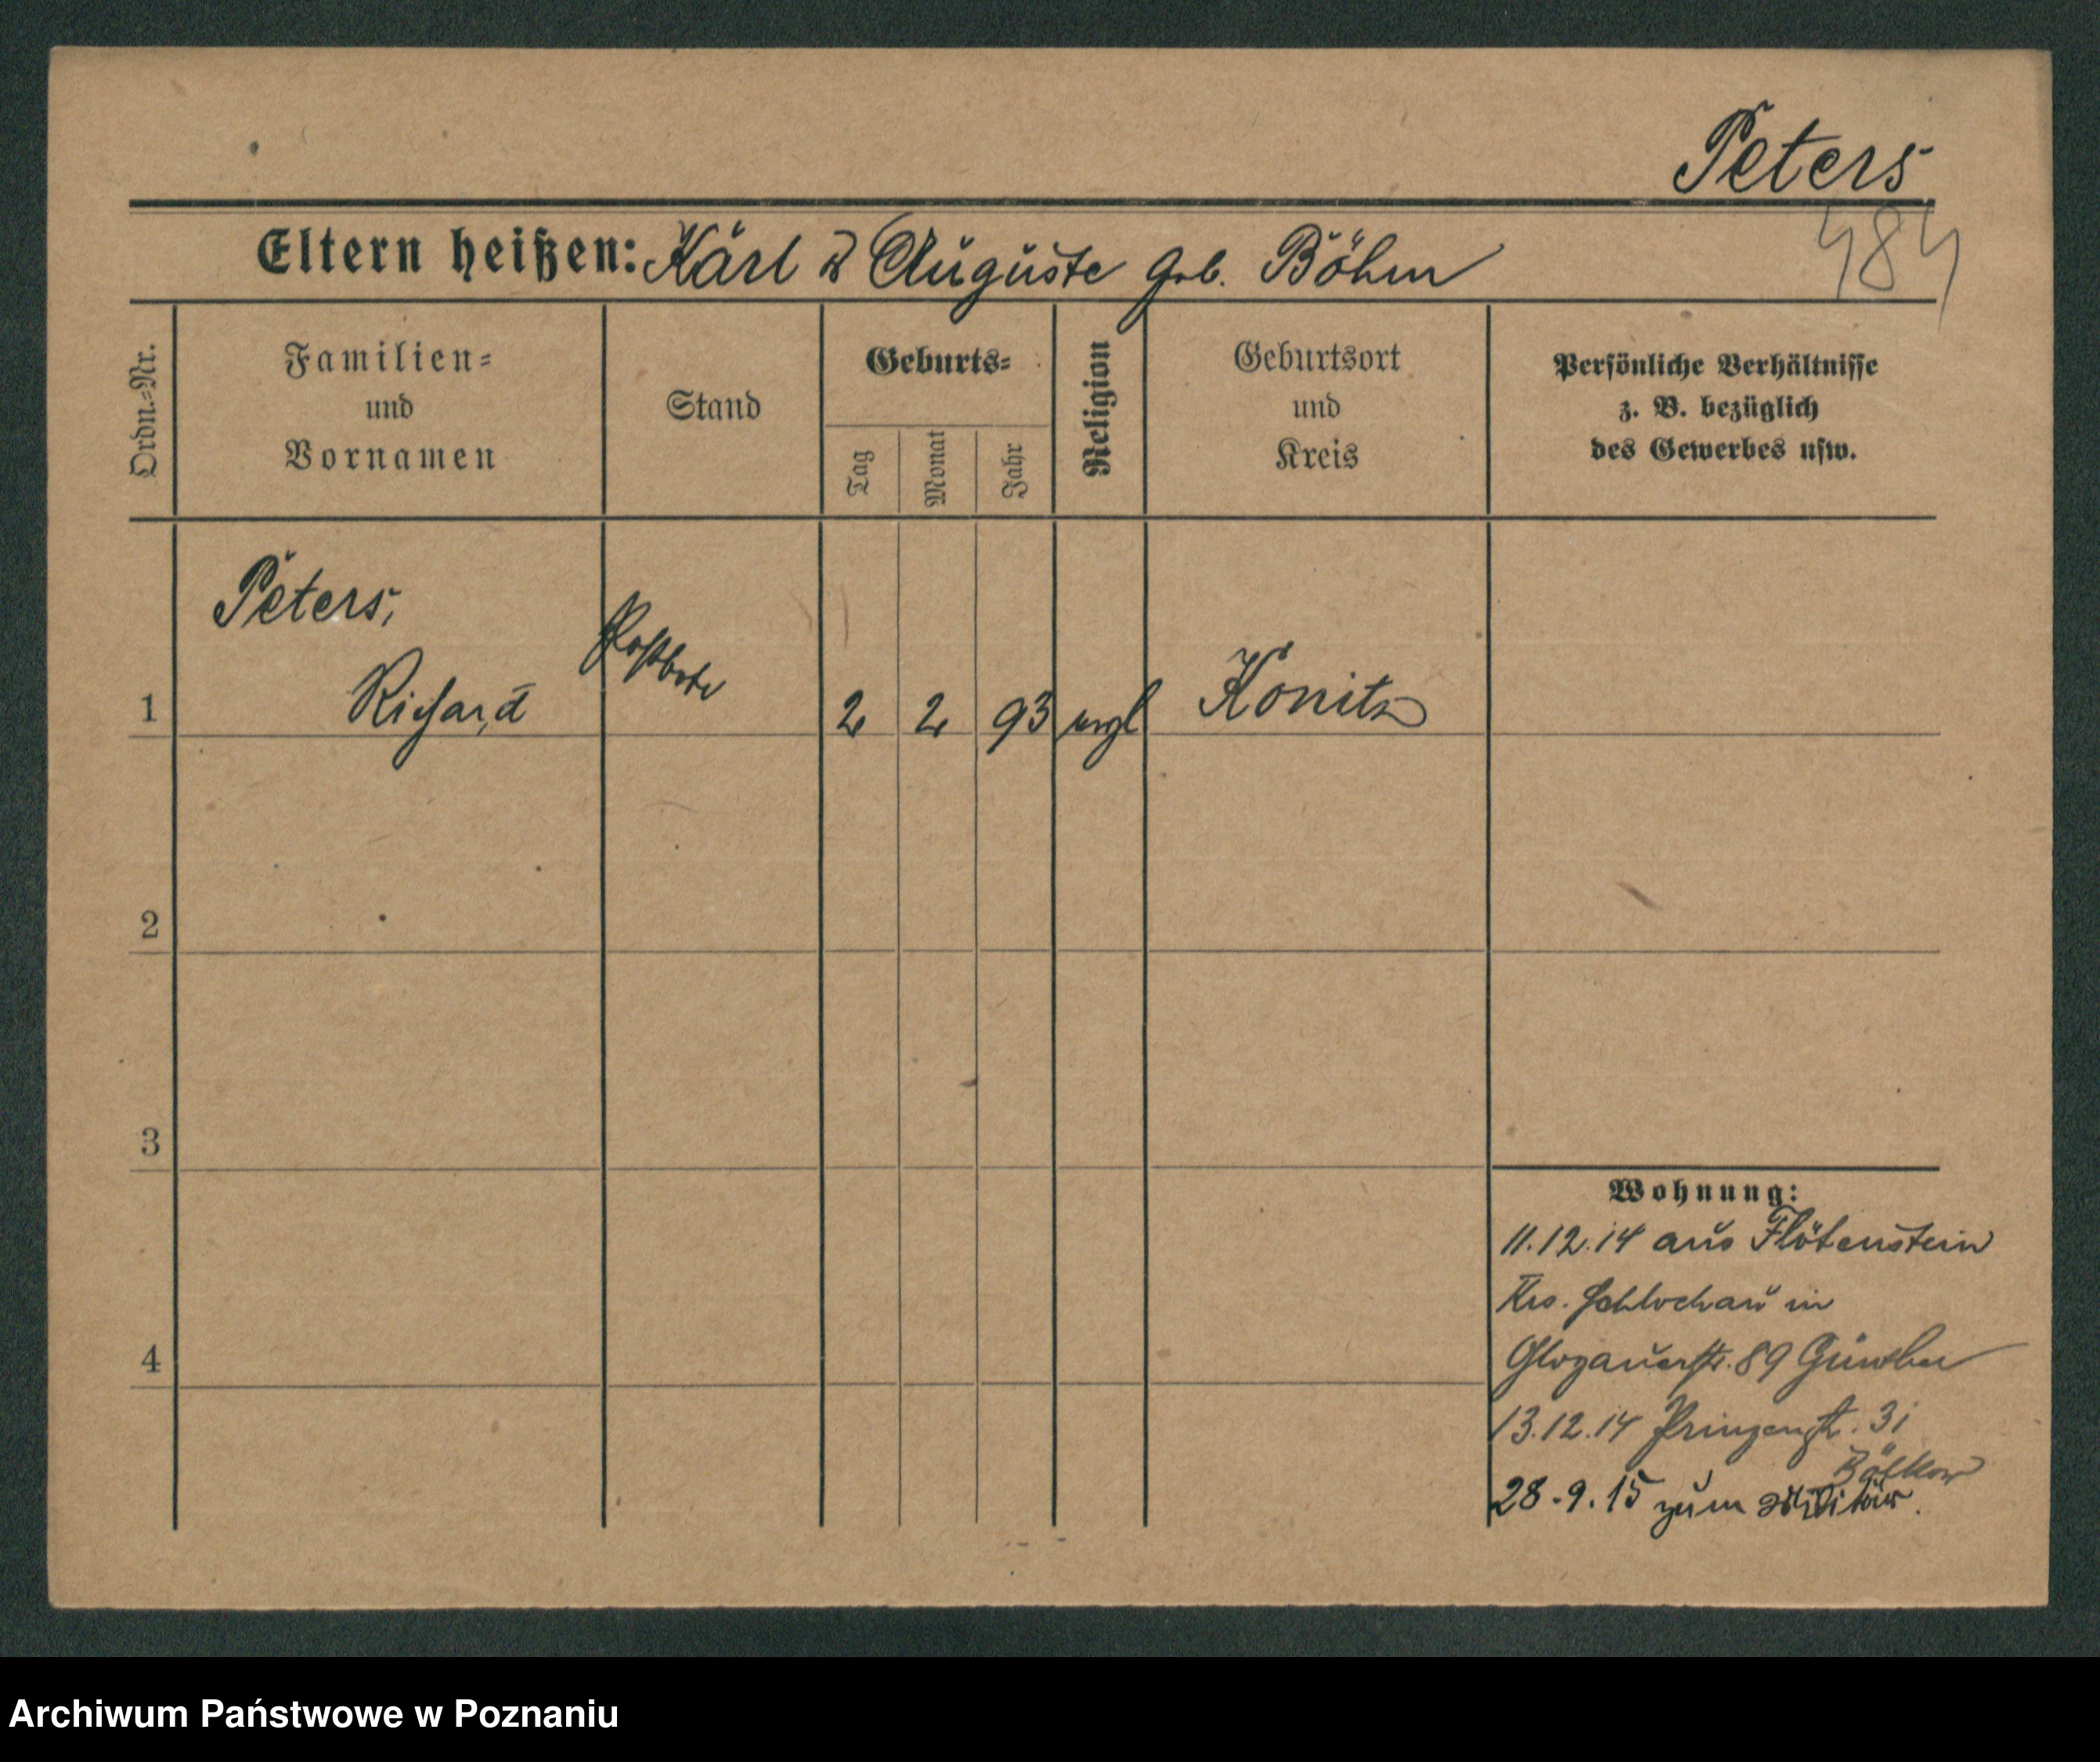 Peters
484
Eltern heißen: Karl u Auguste geb. Böhm
Ordn.=Nr.
Familien=
und
Vornamen
Stand
Geburts=
Tag
Monat
Jahr
Religion
Geburtsort
und
Kreis
Persönliche Verhältnisse
z. B. bezüglich
des Gewerbes usw.
1
Peters,
Richard
Postbote
2 2 93 evgl Konitz
2
3
4
Wohnung:
11.12.14 aus Flötenstein
Krs. Schlochau in
Glogauerstr. 89 Günther
13.12.14 Prinzenstr. 31
28.9.15 zum Militär.
Archiwum Państwowe w Poznaniu